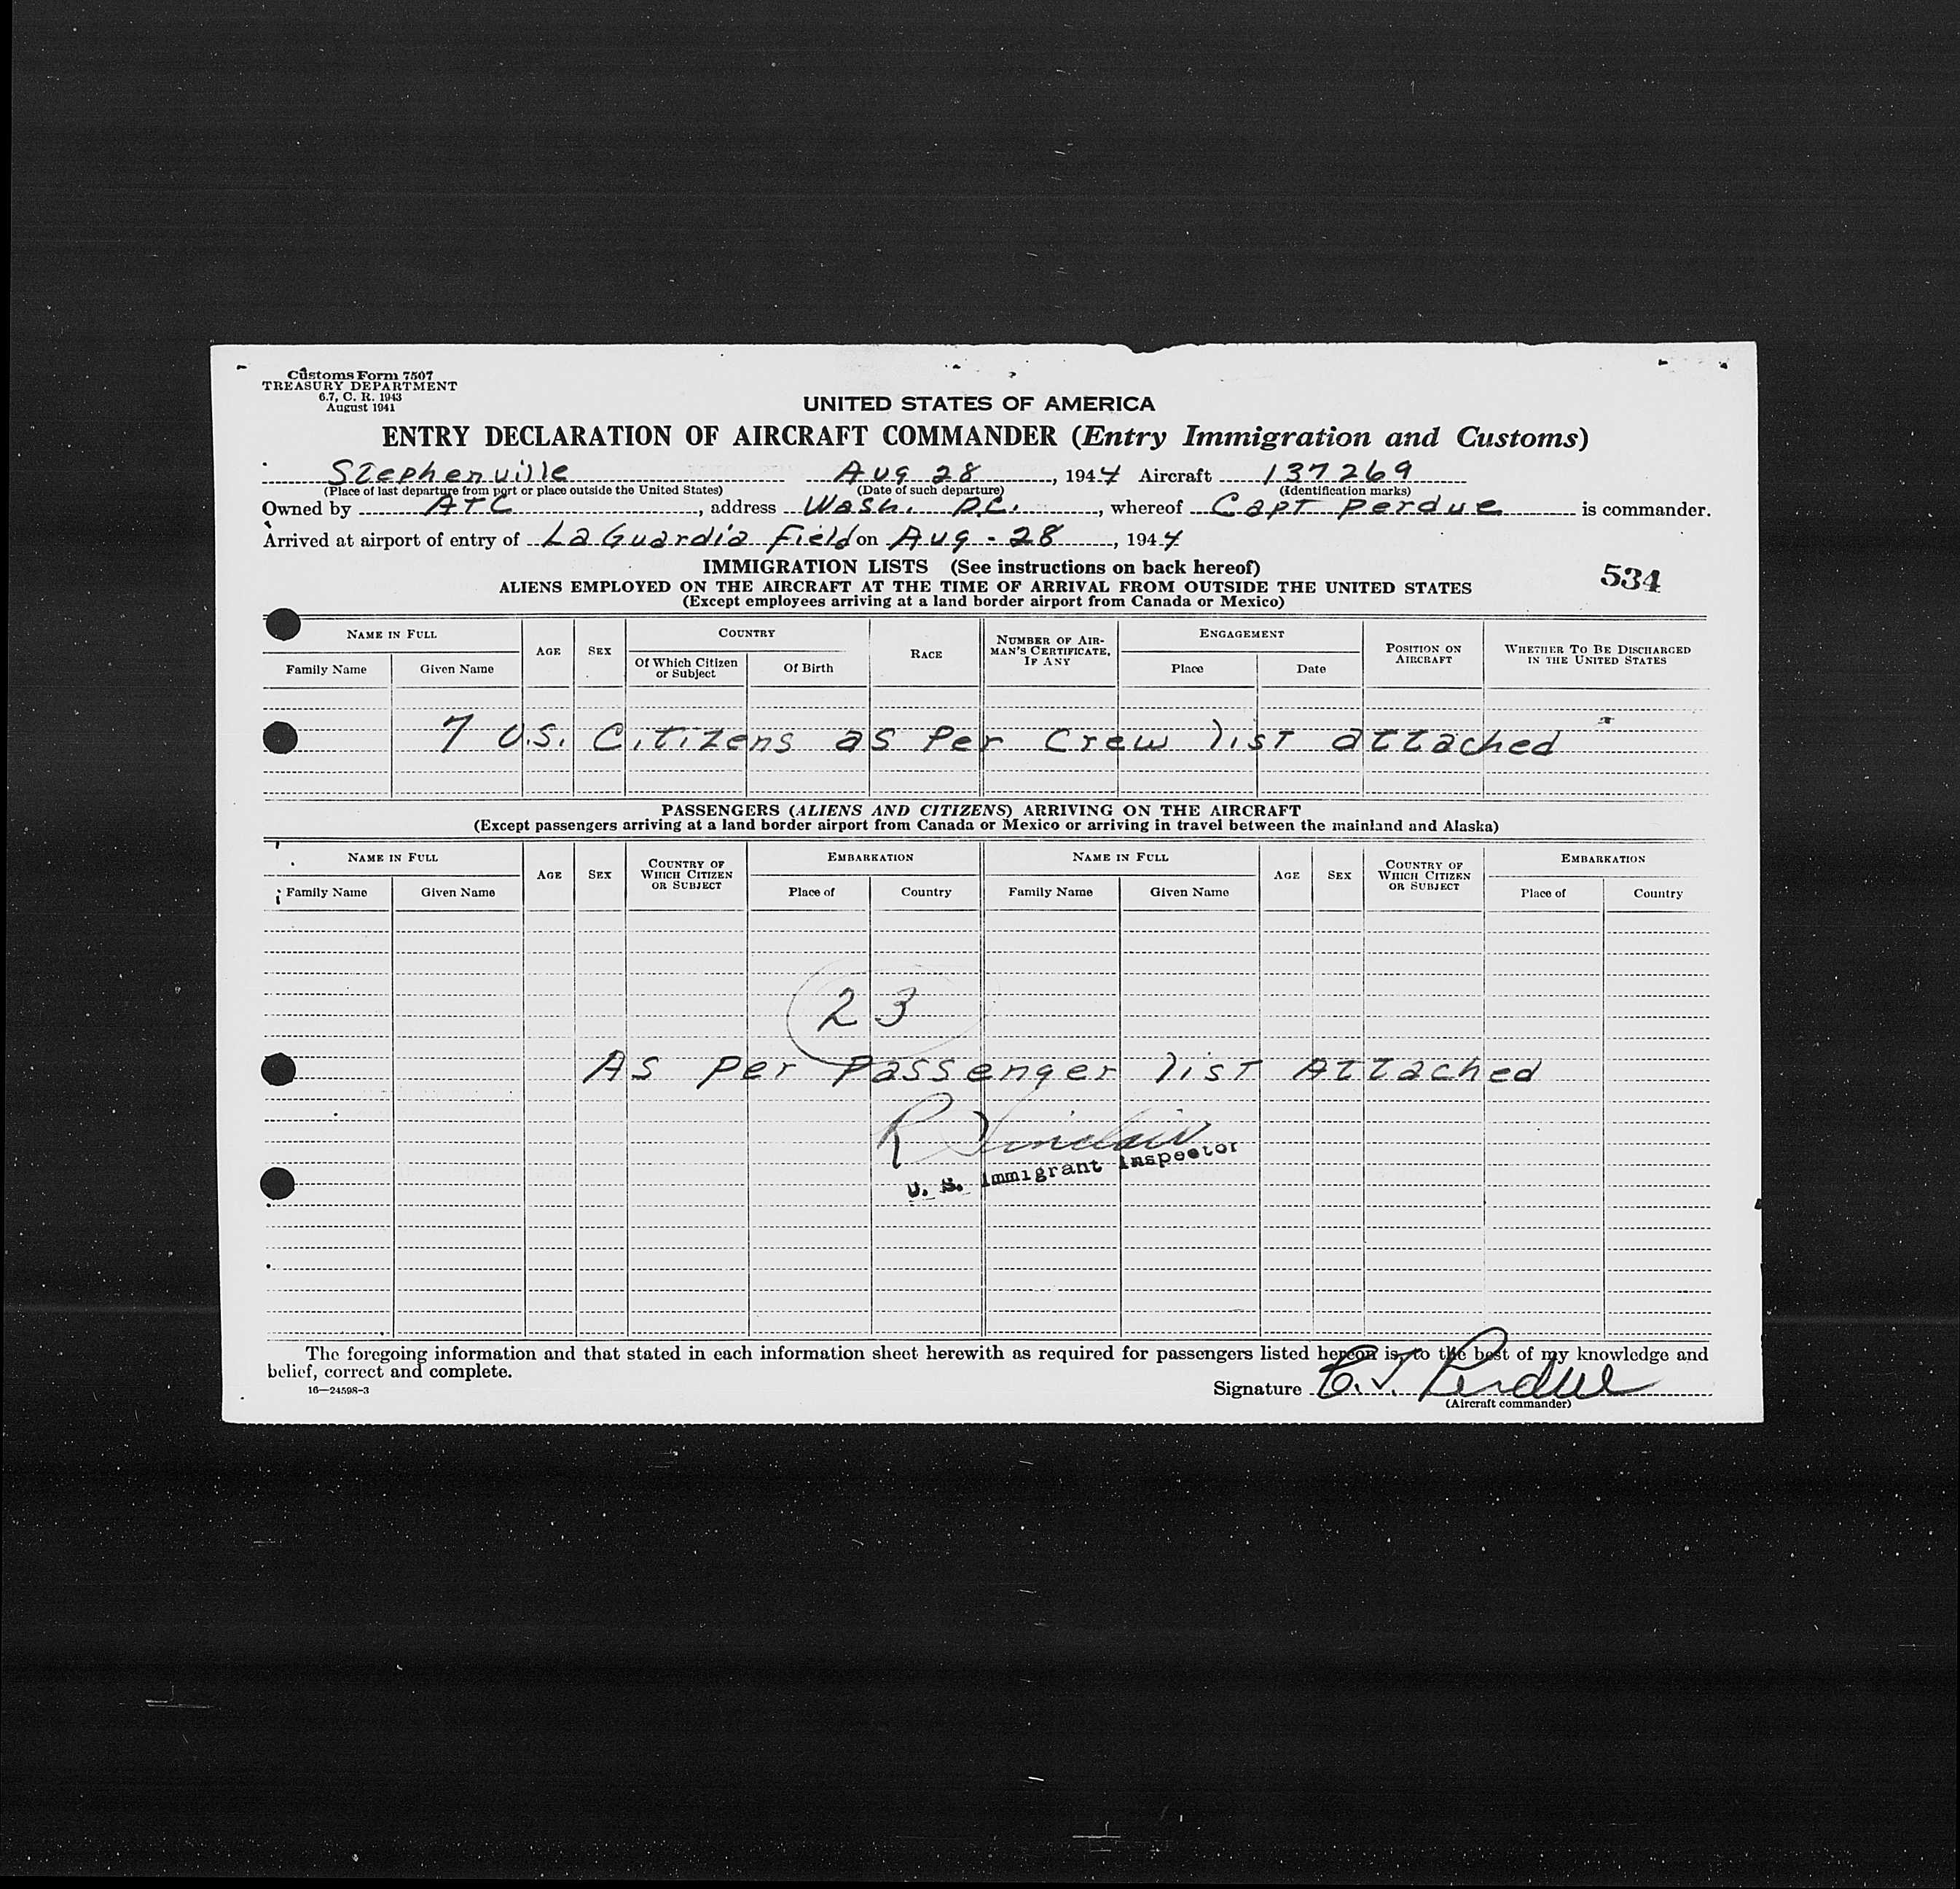 Customs Form 7507
TREASURY DEPARTMENT
6.7, C. R. 1943
August 1941
UNITED STATES OF AMERICA
ENTRY DECLARATION OF AIRCRAFT COMMANDER (Entry Immigration and Customs)
Stephenville Aug 28, 1944 Aircraft 137269
(Place of last departure from port or place outside the United States) (Date of such departure) (Identification marks)
Owned by ATC, address Wash. D.C., whereof Capt Perdue is commander.
Arrived at airport of entry of La Guardia Field on Aug - 28, 1944
IMMIGRATION LISTS (See instructions on back hereof)
534
ALIENS EMPLOYED ON THE AIRCRAFT AT THE TIME OF ARRIVAL FROM OUTSIDE THE UNITED STATES
(Except employees arriving at a land border airport from Canada or Mexico)
NAME IN FULL AGE SEX COUNTRY RACE NUMBER OF AIRMAN'S CERTIFICATE, IF ANY ENGAGEMENT POSITION ON AIRCRAFT WHETHER TO BE DISCHARGED IN THE UNITED STATES
Family Name Given Name Of Which Citizen or Subject Of Birth Place Date
7 U.S. Citizens as Per Crew list attached
PASSENGERS (ALIENS AND CITIZENS) ARRIVING ON THE AIRCRAFT
(Except passengers arriving at a land border airport from Canada or Mexico or arriving in travel between the mainland and Alaska)
NAME IN FULL AGE SEX COUNTRY OF WHICH CITIZEN OR SUBJECT EMBARKATION NAME IN FULL AGE SEX COUNTRY OF WHICH CITIZEN OR SUBJECT EMBARKATION
Family Name Given Name Place of Country Family Name Given Name Place of Country
23
As per Passenger list Attached
R Sinclair
U. S. Immigrant Inspector
The foregoing information and that stated in each information sheet herewith as required for passengers listed hereon is, to the best of my knowledge and
belief, correct and complete.
16—24598-3
Signature C.J. Perdue
(Aircraft commander)